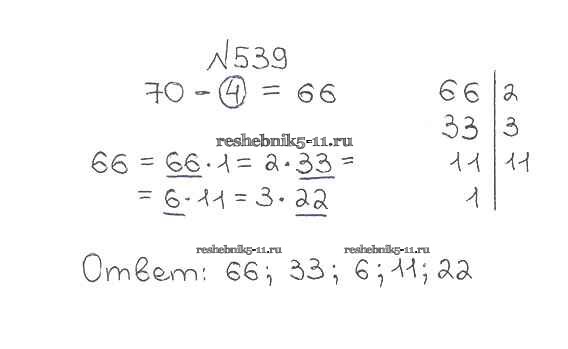 №539
70 - 4 = 66
66 | 2
33 | 3
11 | 11
1 |
reshebnik5-11.ru
66 = 66 · 1 = 2 · 33 =
= 6 · 11 = 3 · 22
reshebnik5-11.ru reshebnik5-11.ru
Ответ: 66; 33; 6; 11; 22